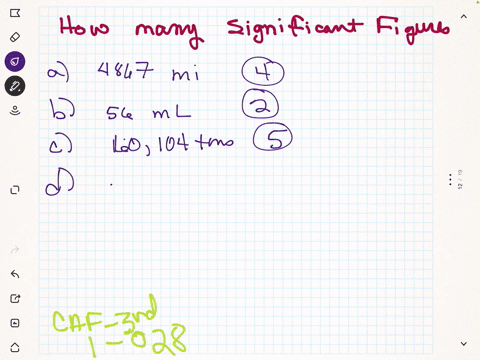 How many Significant Figures
a) 4867 mi 4
b) 56 mL 2
c) 60,104 tons 5
d)
CAF-3rd
1-028
12 / 19